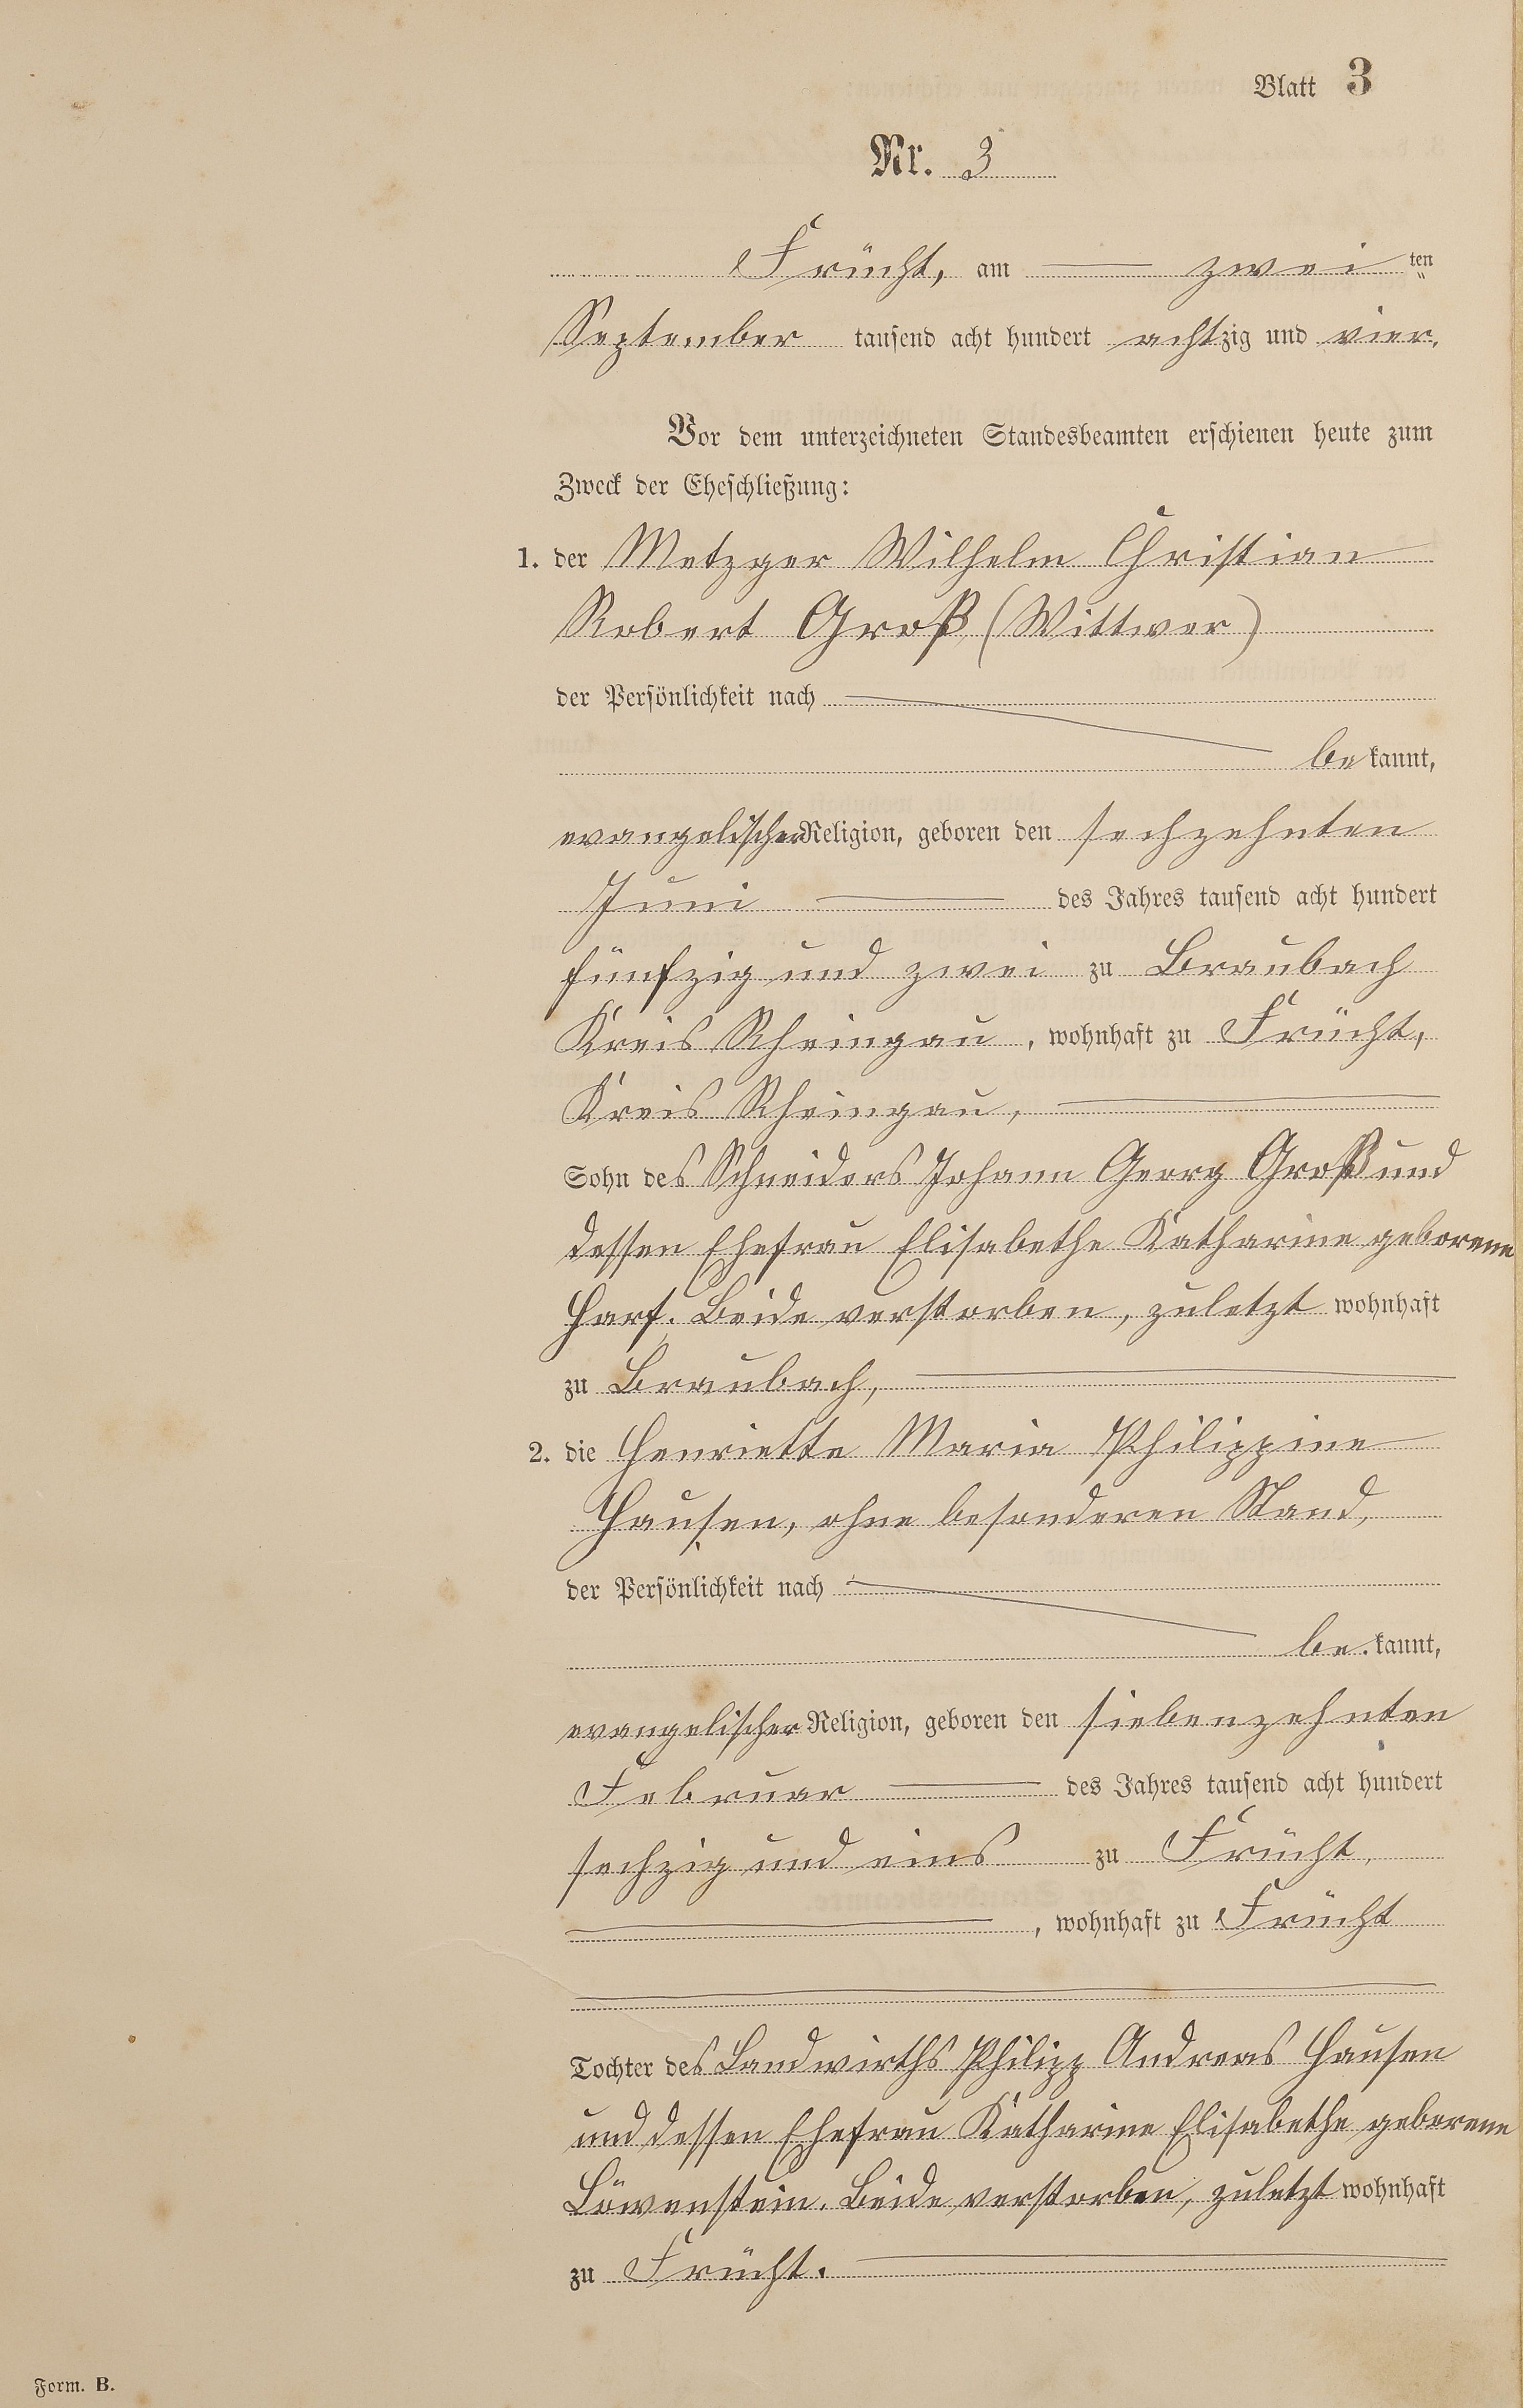 Blatt 3
Nr. 3
Frücht, am zwei ten
September tausend acht hundert achtzig und vier.
Vor dem unterzeichneten Standesbeamten erschienen heute zum
Zweck der Eheschließung:
1. der Metzger Wilhelm Christian
Robert Groß (Wittwer)
der Persönlichkeit nach
be kannt,
evangelischer Religion, geboren den sechzehnten
Juni des Jahres tausend acht hundert
fünfzig und zwei zu Braubach
Kreis Rheingau, wohnhaft zu Frücht,
Kreis Rheingau,
Sohn des Schneiders Johann Georg Groß und
dessen Ehefrau Elisabethe Katharine geborene
Harf. Beide verstorben, zuletzt wohnhaft
zu Braubach,
2. die Henriette Maria Philippine
Hausen, ohne besonderen Stand,
der Persönlichkeit nach
be kannt,
evangelischer Religion, geboren den siebenzehnten
Februar des Jahres tausend acht hundert
sechzig und eins zu Frücht,
, wohnhaft zu Frücht
Tochter des Landwirths Philipp Andreas Hausen
und dessen Ehefrau Katharine Elisabethe geborene
Löwenstein. Beide verstorben, zuletzt wohnhaft
zu Frücht.
Form. B.